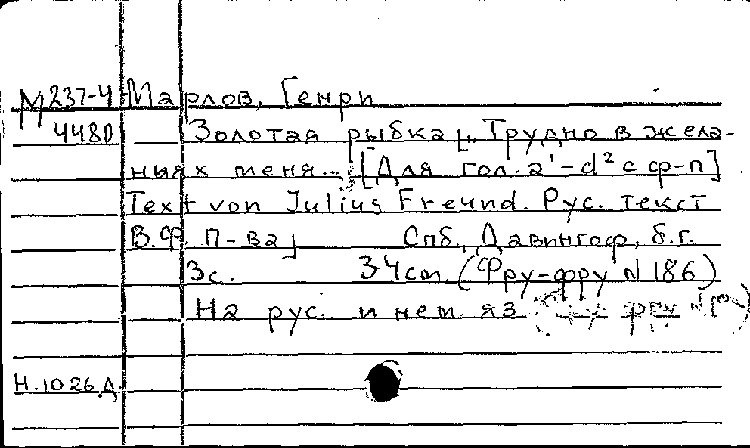 М237-4 Марлов, Генри
4480 Золотая рыбка[„Трудно в жела-
ниях меня... [Для гол. a¹-d² с ф-п]
Text von Julius Freund. Рус. текст
В.Ф. П-ва] Спб., Давингоф, б.г.
3с. 34cm. (Фру-фру N 186)
На рус. и нем. яз.
Н.1026.Д